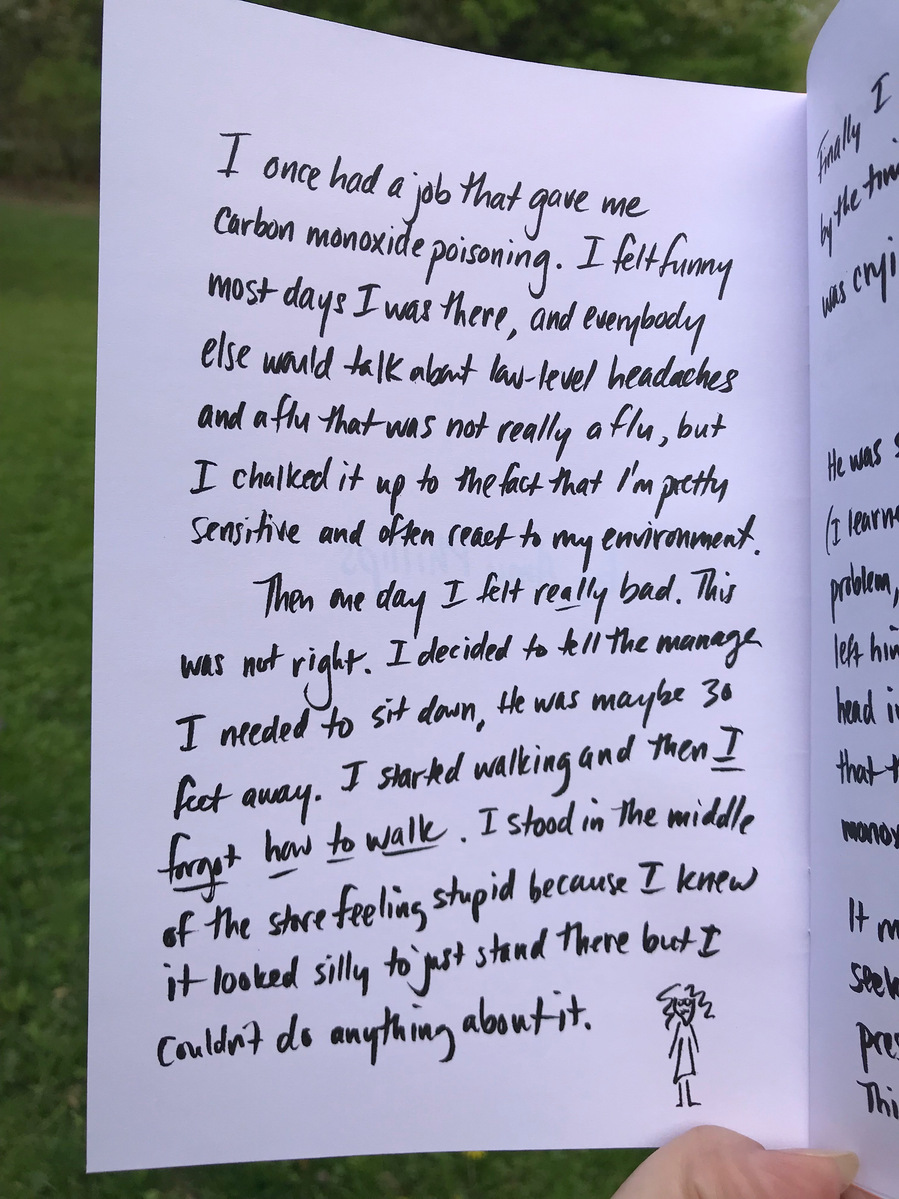 I once had a job that gave me
carbon monoxide poisoning. I felt funny
most days I was there, and everybody
else would talk about low-level headaches
and a flu that was not really a flu, but
I chalked it up to the fact that I'm pretty
sensitive and often react to my environment.
Then one day I felt really bad. This
was not right. I decided to tell the manager
I needed to sit down, He was maybe 30
feet away. I started walking and then I
forgot how to walk. I stood in the middle
of the store feeling stupid because I knew
it looked silly to just stand there but I
couldn't do anything about it.
Finally I
by the
was
He was
(I
problem,
left
head
that

It